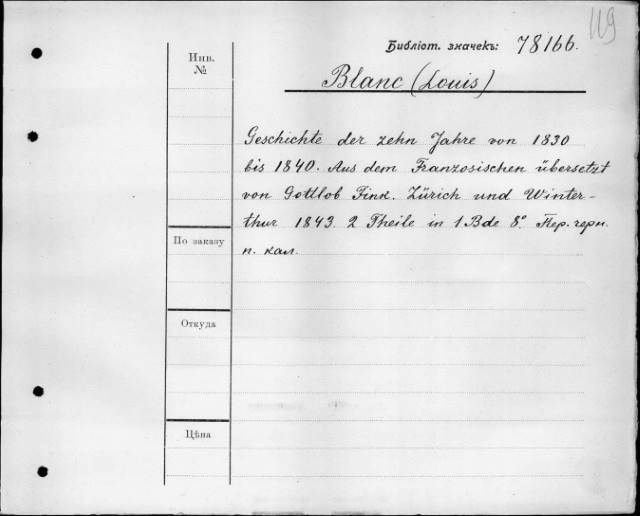 119
Библіот. значекъ: 78166.
Инв.
№
Blanc (Louis)
Geschichte der zehn Jahre von 1830
bis 1840. Aus dem Französischen übersetzt
von Gottlob Fink. Zürich und Winter-
thur 1843. 2 Theile in 1 Bde 8º. Пер. черн.
п. кал.
По заказу
Откуда
Цѣна